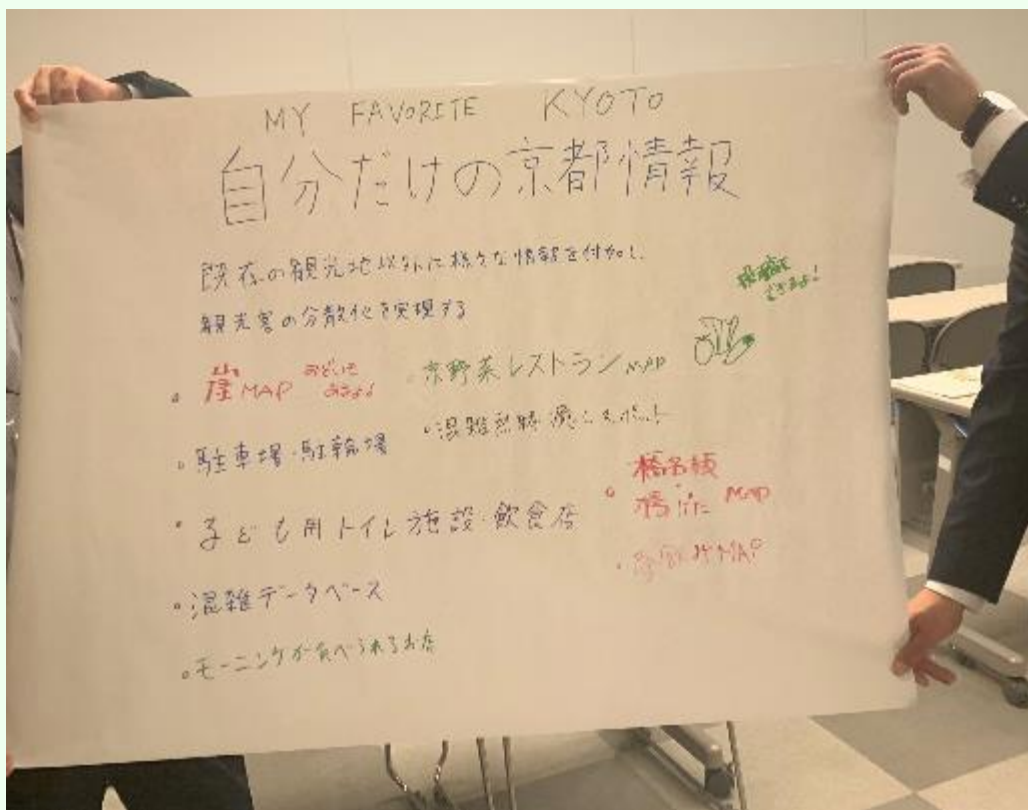 MY FAVORITE KYOTO
自分だけの京都情報
既存の観光地以外に様々な情報を付加し、
観光客の分散化を実現する
。崖MAP おどいも あるよ!
。京野菜レストランMAP
投稿も できるよ!
・駐車場・駐輪場
・混雑 癒しスポット
・子ども用トイレ施設・飲食店
。橋 MAP
・混雑データベース
・ MAP
。モーニングが食べられるお店